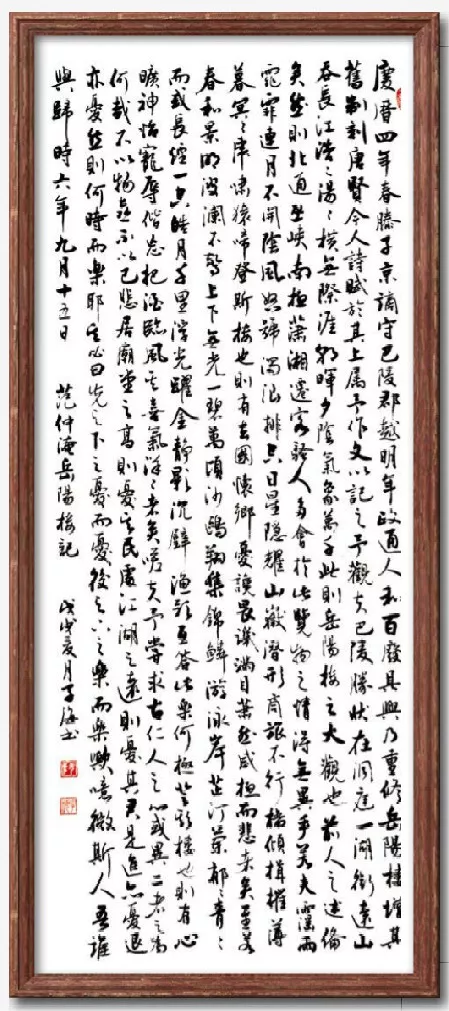 慶曆四年春滕子京謫守巴陵郡越明年政通人和百廢具興乃重修岳陽樓增其
舊制刻唐賢今人詩賦於其上屬予作文以記之予觀夫巴陵勝狀在洞庭一湖銜遠山
吞長江浩々湯々橫無際涯朝暉夕陰氣象萬千此則岳陽樓之大觀也前人之述備
矣然則北通巫峽南極瀟湘遷客騷人多會於此覽物之情得無異乎若夫霪雨
霏霏連月不開陰風怒號濁浪排空日星隱耀山嶽潛形商旅不行檣傾楫摧薄
暮冥々虎嘯猿啼登斯樓也則有去國懷鄉憂讒畏譏滿目蕭然感極而悲者矣至若
春和景明波瀾不驚上下天光一碧萬頃沙鷗翔集錦鱗游泳岸芷汀蘭郁々青々
而或長煙一空皓月千里浮光躍金靜影沉璧漁歌互答此樂何極登斯樓也則有心
曠神怡寵辱偕忘把酒臨風其喜氣洋々者矣嗟夫予嘗求古仁人之心或異二者之為
何哉不以物喜不以己悲居廟堂之高則憂其民處江湖之遠則憂其君是進亦憂退
亦憂然則何時而樂耶其必曰先天下之憂而憂後天下之樂而樂歟噫微斯人吾誰
與歸時六年九月十五日 范仲淹岳陽樓記 戊戌夏月子海书